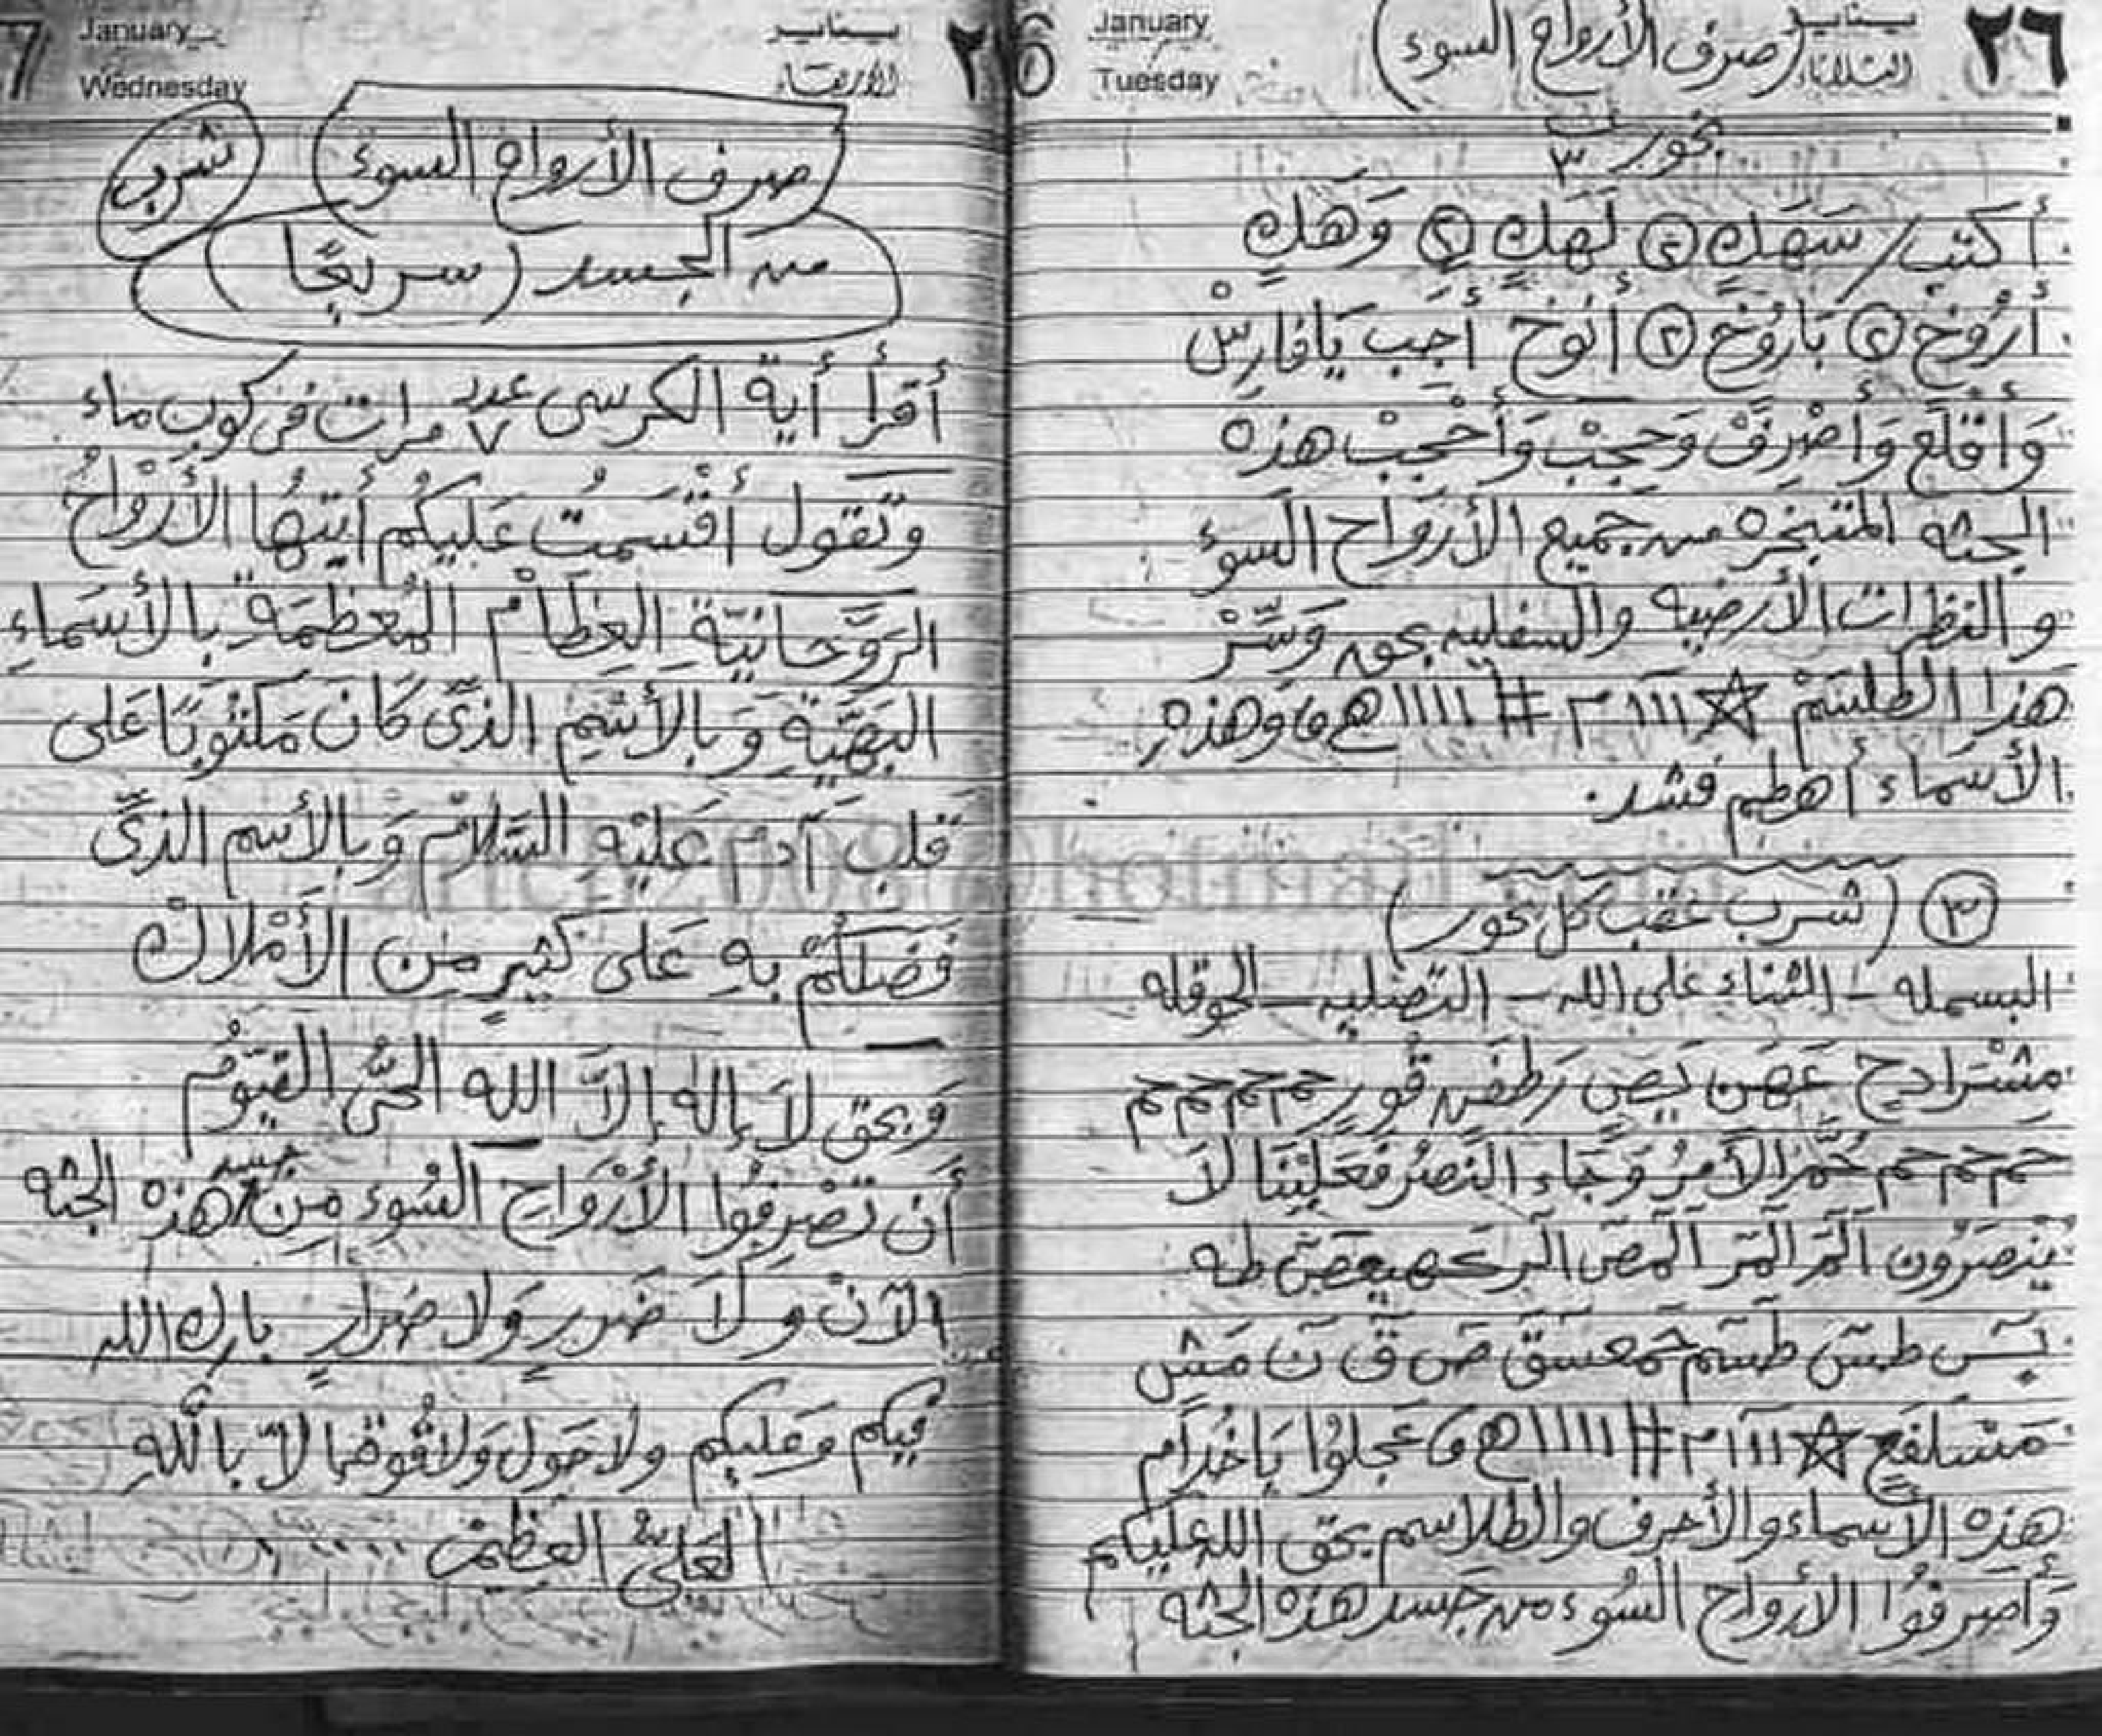 ٢٦ يناير الثلاثاء (صرف الأرواح السوء) January Tuesday 6
بخور ٣
أكتب / سَهَلٍ ② لَهَلٍ ② وَهَلٍ
أَرُوُخٍ ② بَارُوُخٍ ② أَنوُخٍ أَجِب يَافارِسْ
وَأَقلَع وَأَصْرِفْ وَحِجِبْ وَأَحْجِبْ هذه
الجثه المتبخره من جميع الأَروَاح السوء
والنظرات الأرضيه والسفليه بحق وَسِّرْ
هذا الطلسَمْ ☆ ااا م # اااا ﻫ و وَهَذهِ
الأسَماء أهطم فشد.
③ (شرب عقب كل بخور)
البسمله - الثناء على الله - التصليه - الحوقله
حم حم حم حم
حم حم حم حُمَّ الأَمرُ وَجَاءِ النَصرُ فَعَليْنَا لاَ
يُنصَرُون الَمَ الَمَر الَمَص الَر كَهيعَصَ طه
يَس طسَ طسَم حَمعسَقَ صَ قَ نَ مَش
مَسَلفَعٍ ☆ ااا م # اااا ﻫ و عَجلوُا يَاخُدَام
هذه الأسماء والأحرف والطلاسم بحق الله عليكم
وَأَصرِفوُا الأرواح السُوء من جَسد هذه الجثه
يناير الأربعاء January Wednesday 7
صرف الأرواح السوء شرب
من الجسد (سريعًا)
أقرأ أية الكرسى عدد ٧ مرات فى كوب ماء
وتَقول أَقْسَمتُ عَليكُم أَيتهُا الأَرْوَاحُ
الرَوَحانِيّةِ العِظَامْ المُعظمَةِ بالأسَماءِ
البَهيّةِ وَبالأَسْمِ الذىّ كَانَ مَكتوُبَا عَلى
قَلبِ آدم عَليْهِ السَلامْ وَبالأسم الذىّ
فَضلتُم بِهِ عَلى كَثيرٍ مِن الأَمْلاكْ
وَبحق لاَ إله إلاَّ الله الحىُّ القيوُم
أَن تَصْرِفوُا الأَرْوَاحِ السُوءِ مِنْ جسد هذه الجثه
الآنْ ولاَ ضَررٍ وَلا ضِرارٍ بارك الله
فيكم وَعليكم ولا حَول وَلا قُوةَ الاّ باللّهِ
العَلىِّ العَظِيمْ